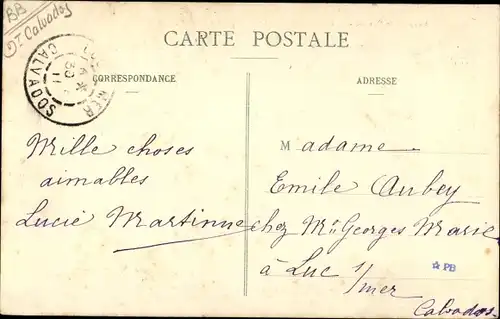 BB
Dt Calvados
CARTE POSTALE
CORRESPONDANCE
ADRESSE
MER
CALVADOS
30
11
Mille choses
aimables
Lucie Martinne
Madame
Emile Aubey
chez Mr Georges Marie
à Luc s/mer
PB
Calvados